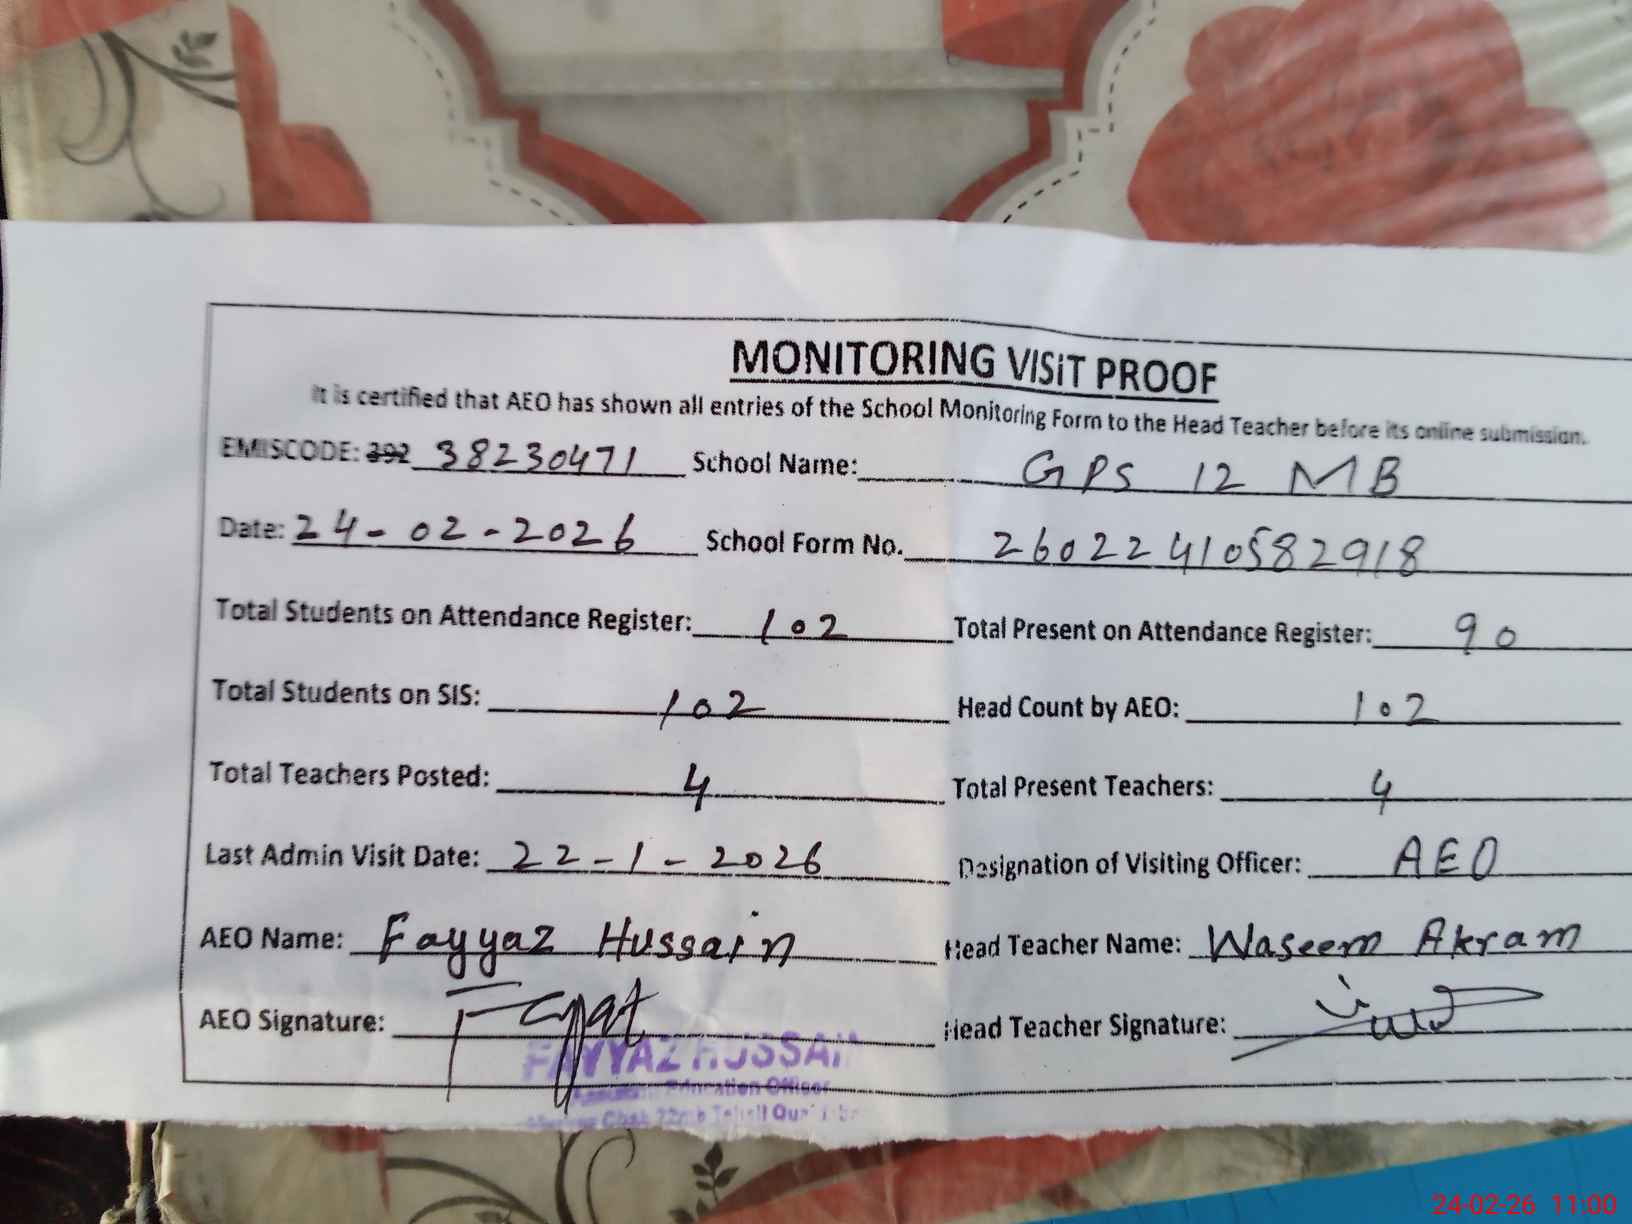 MONITORING VISiT PROOF
It is certified that AEO has shown all entries of the School Monitoring Form to the Head Teacher before its online submission.
EMISCODE: 392 38230471 School Name: GPS 12 MB
Date: 24-02-2026 School Form No. 26022410582918
Total Students on Attendance Register: 102 Total Present on Attendance Register: 90
Total Students on SIS: 102 Head Count by AEO: 102
Total Teachers Posted: 4 Total Present Teachers: 4
Last Admin Visit Date: 22-1-2026 Designation of Visiting Officer: AEO
AEO Name: Fayyaz Hussain Head Teacher Name: Waseem Akram
AEO Signature: Head Teacher Signature:
FAYYAZ HUSSAIN
Assistant Education Officer
Chak 22mb Tehsil
24-02-26 11:00